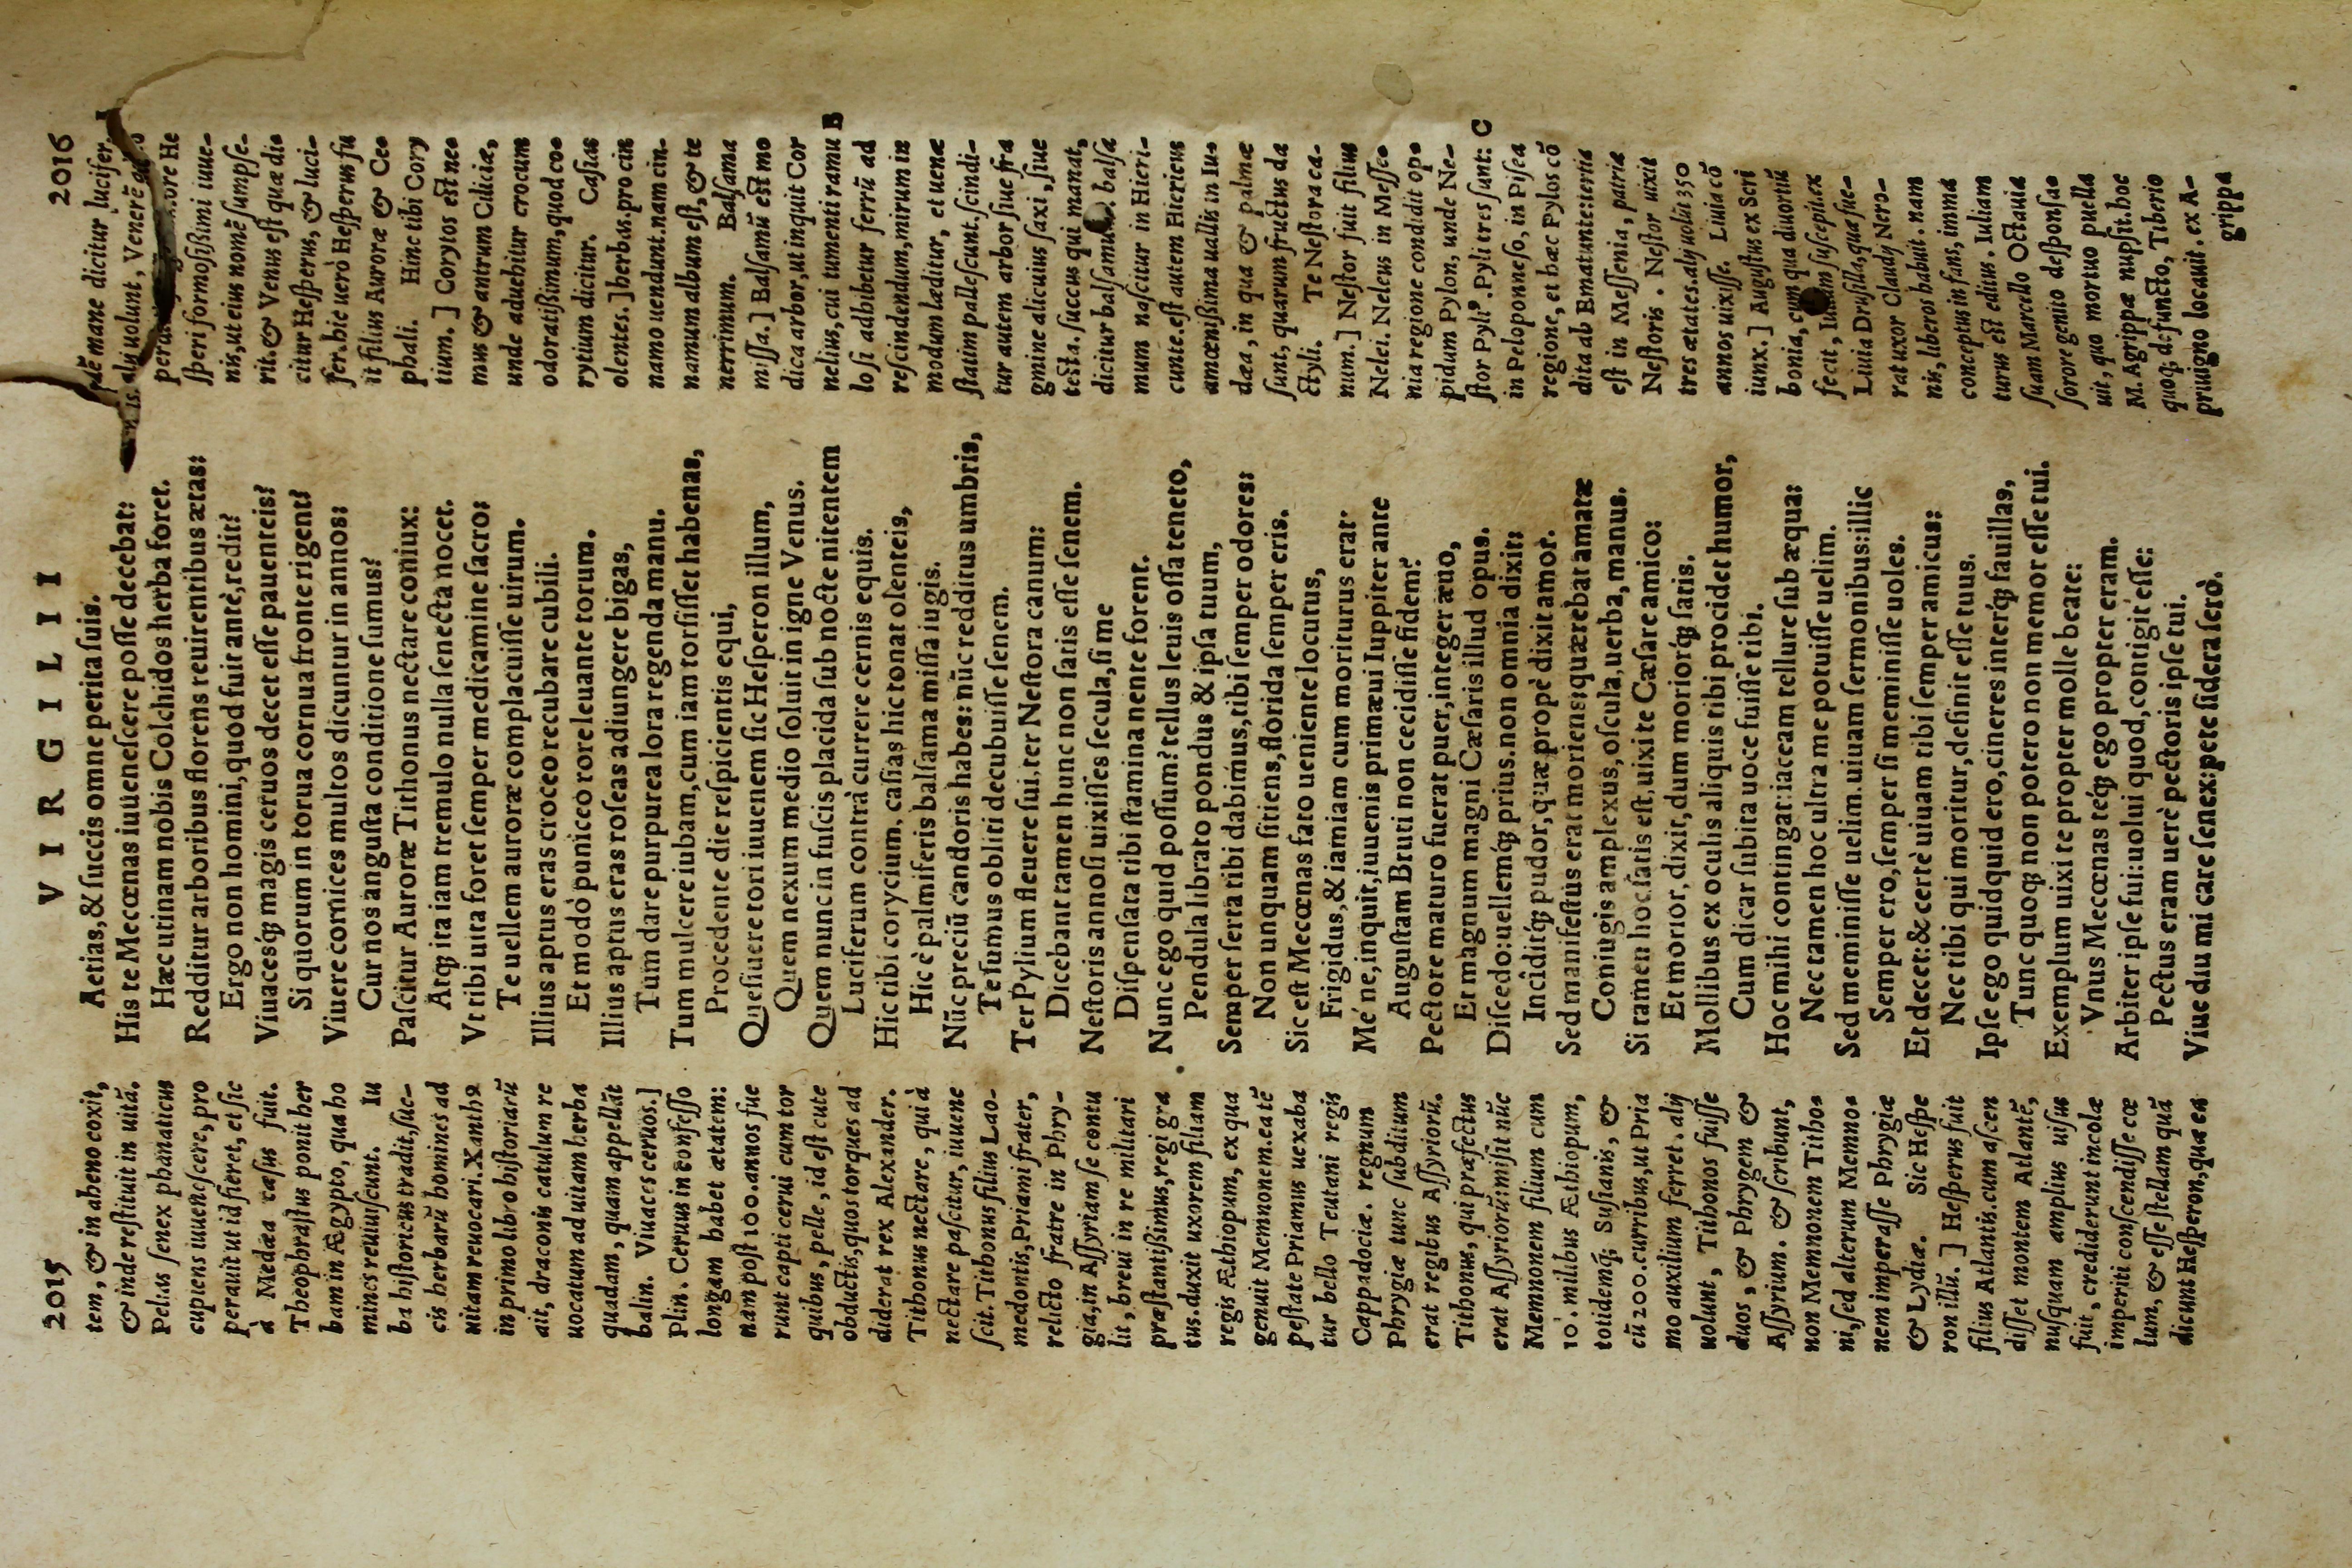 2015
VIRGILII
2016
tem, & in aheno coxit,
& inde reſtituit in uitã.
Pelias ſenex phanaticus
cupiens iuueneſcere, pro
perauit ut id fieret, et ſic
à Medæa caſus fuit.
Theophraſtus ponit her
bam in Ægypto, qua ho
mines reuiuiſcunt. Iu
ba hiſtoricus tradit, ſuc-
cis herbarũ homines ad
uitam reuocari. Xanth9
in primo libro hiſtoriarũ
ait, draconis catulum re
uocatum ad uitam herba
quadam, quam appellãt
balin. Viuaces ceruos.]
Plin. Ceruus in confeſſo
longam habet ætatem:
nam poſt 100. annos fue
runt capti cerui cum tor
quibus, pelle, id eſt cute
obductis, quos torques ad
diderat rex Alexander.
Tithonus nectare, qui à
nectare paſcitur, iuuene
ſcit. Tithonus filius Lao-
medontis, Priami frater,
relicto fratre in Phry-
gia, in Aſſyriam ſe contu
lit, breui in re militari
præſtantißimus, regi gra
tus. duxit uxorem filiam
regis Æthiopum, ex qua
genuit Memnonem. ea tẽ
peſtate Priamus uexaba
tur bello Teutani regis
Cappadociæ. regnum
Phrygiæ tunc ſubditum
erat regibus Aſſyriorũ.
Tithonus, qui præfectus
erat Aſſyriorũ: miſit nũc
Memnonem filium cum
10. milibus Æthiopum,
totidemq́; Suſianis, &
cũ 200. curribus, ut Pria
mo auxilium ferret. alij
uolunt, Tithonos fuiſſe
duos, & Phrygem &
Aſſyrium. & ſcribunt,
non Memnonem Titho-
ni, ſed alterum Memno-
nem imperaſſe Phrygiæ
& Lydiæ. Sic Heſpe
ron illũ.] Heſperus fuit
filius Atlantis. cum aſcen
diſſet montem Atlantẽ,
nuſquam amplius uiſus
fuit, crediderunt incolæ
imperiti conſcendiſſe cœ
lum, & eſſe ſtellam quã
dicunt Heſperon, quæ ea
Aetias, & ſuccis omne perita ſuis.
His te Mecœnas iuueneſcere poſſe decebat:
Hæc utinam nobis Colchidos herba foret.
Redditur arboribus florens reuirentibus ætas:
Ergo non homini, quod fuit antè, redit?
Viuacesq́ꝫ magis ceruos decet eſſe pauenteis?
Si quorum in torua cornua fronte rigent?
Viuere cornices multos dicuntur in annos:
Cur nos anguſta conditione ſumus?
Paſcitur Auroræ Tithonus nectare coniux:
Atqꝫ ita iam tremulo nulla ſenecta nocet.
Vt tibi uita foret ſemper medicamine ſacro:
Te uellem auroræ complacuiſſe uirum.
Illius aptus eras croceo recubare cubili.
Et modò puniceo rore leuante torum.
Illius aptus eras roſeas adiungere bigas,
Tum dare purpurea lora regenda manu.
Tum mulcere iubam, cum iam torſiſſet habenas,
Procedente die reſpicientis equi,
Queſiuere tori iuuenem ſic Heſperon illum,
Quem nexum medio ſoluit in igne Venus.
Quem nunc in fuſcis placida ſub nocte nitentem
Luciferum contrà currere cernis equis.
Hic tibi corycium, caſias hic tonat olenteis,
Hic è palmiferis balſama miſſa iugis.
Nũc preciũ candoris habes: nũc redditus umbris,
Te ſumus obliti decubuiſſe ſenem.
Ter Pylium fleuere ſui, ter Neſtora canum:
Dicebant tamen hunc non ſatis eſſe ſenem.
Neſtoris annoſi uixiſſes ſecula, ſi me
Diſpenſata tibi ſtamina nente forent.
Nunc ego quid poſſum? tellus leuis oſſa teneto,
Pendula librato pondus & ipſa tuum,
Semper ſerta tibi dabimus, tibi ſemper odores:
Non unquam ſitiens, florida ſemper eris.
Sic eſt Mecœnas fato ueniente locutus,
Frigidus, & iamiam cum moriturus erat.
Mé ne, inquit, iuuenis primæui Iuppiter ante
Auguſtam Bruti non cecidiſſe fidem?
Pectore maturo fuerat puer, integer æuo,
Et magnum magni Cæſaris illud opus.
Diſcedo: uellemq́ꝫ prius. non omnia dixit:
Incîditq́ꝫ pudor, quæ propè dixit amor.
Sed manifeſtus erat moriens: quærebat amatæ
Coniugis amplexus, oſcula, uerba, manus.
Si tamen hoc ſatis eſt, uixi te Cæſare amico:
Et morior, dixit, dum moriorq́ꝫ ſatis.
Mollibus ex oculis aliquis tibi procidet humor,
Cum dicar ſubita uoce fuiſſe tibi.
Hoc mihi contingat: iaceam tellure ſub æqua:
Nec tamen hoc ultra me potuiſſe uelim.
Sed meminiſſe uelim. uiuam ſermonibus: illic
Semper ero, ſemper ſi meminiſſe uoles.
Et decet: & certè uiuam tibi ſemper amicus:
Nec tibi qui moritur, deſinit eſſe tuus.
Ipſe ego quidquid ero, cineres interq́ꝫ fauillas,
Tunc quoqꝫ non potero non memor eſſe tui.
Exemplum uixi te propter molle beate:
Vnus Mecœnas teq́ꝫ ego propter eram.
Arbiter ipſe fui: uolui quod, contigit eſſe:
Pectus eram uerè pectoris ipſe tui.
Viue diu mi care ſenex: pete ſidera ſerò.
mane dicitur lucifer,
alij uolunt, Venerẽ
He
ſperi formoſißimi iuue-
nis, ut eius nomẽ ſumpſe-
rit. & Venus eſt quæ di-
citur Heſperus, & luci-
fer. hic uerò Heſperus fu
it filius Auroræ & Ce-
phali. Hinc tibi Cory
tium.] Corytos eſt ne-
mus & antrum Ciliciæ,
unde aduehitur crocum
odoratißimum, quod co-
rytium dicitur. Caſias
olentes.] herbas. pro cin
namo uendunt. nam cin-
namum album eſt, & te
nerrimum. Balſama
miſſa.] Balſamũ eſt mo
dica arbor, ut inquit Cor
nelius, cui tumenti ramu B
lo ſi adhibetur ferrũ ad
reſcindendum, mirum in
modum læditur, et uenæ
ſtatim palleſcunt. ſcindi-
tur autem arbor ſiue fra
gmine alicuius ſaxi, ſiue
teſta. ſuccus qui manat,
dicitur balſamum. balſa
mum naſcitur in Hieri-
cunte. eſt autem Hiericus
amœnißima uallis in Iu-
dæa, in qua & palmæ
ſunt, quarum fructus da
ctyli. Te Neſtora ca-
num.] Neſtor fuit filius
Nelei. Neleus in Meſſe-
nia regione condidit op-
pidum Pylon, unde Ne-
ſtor Pyli9. Pyli tres ſunt: C
in Peloponneſo, in Piſea
regione, et hæc Pylos cõ
dita ab Ematunte: tertia
eſt in Meſſenia, patria
Neſtoris. Neſtor uixit
tres ætates. alij uolũt 250
annos uixiſſe. Liuia cõ
iunx.] Auguſtus ex Scri
bonia, cum qua diuortiũ
fecit, Iuliam ſuſcepit. ex
Liuia Druſilla, quæ fue-
rat uxor Claudij Nero-
nis, liberos habuit. nam
conceptus infans, imma
turus eſt editus. Iuliam
ſuam Marcello Octauia
ſorore genito deſponſa-
uit, quo mortuo puella
M. Agrippæ nupſit. hoc
quoq́; defuncto, Tiberio
priuigno locauit. ex A-
grippa